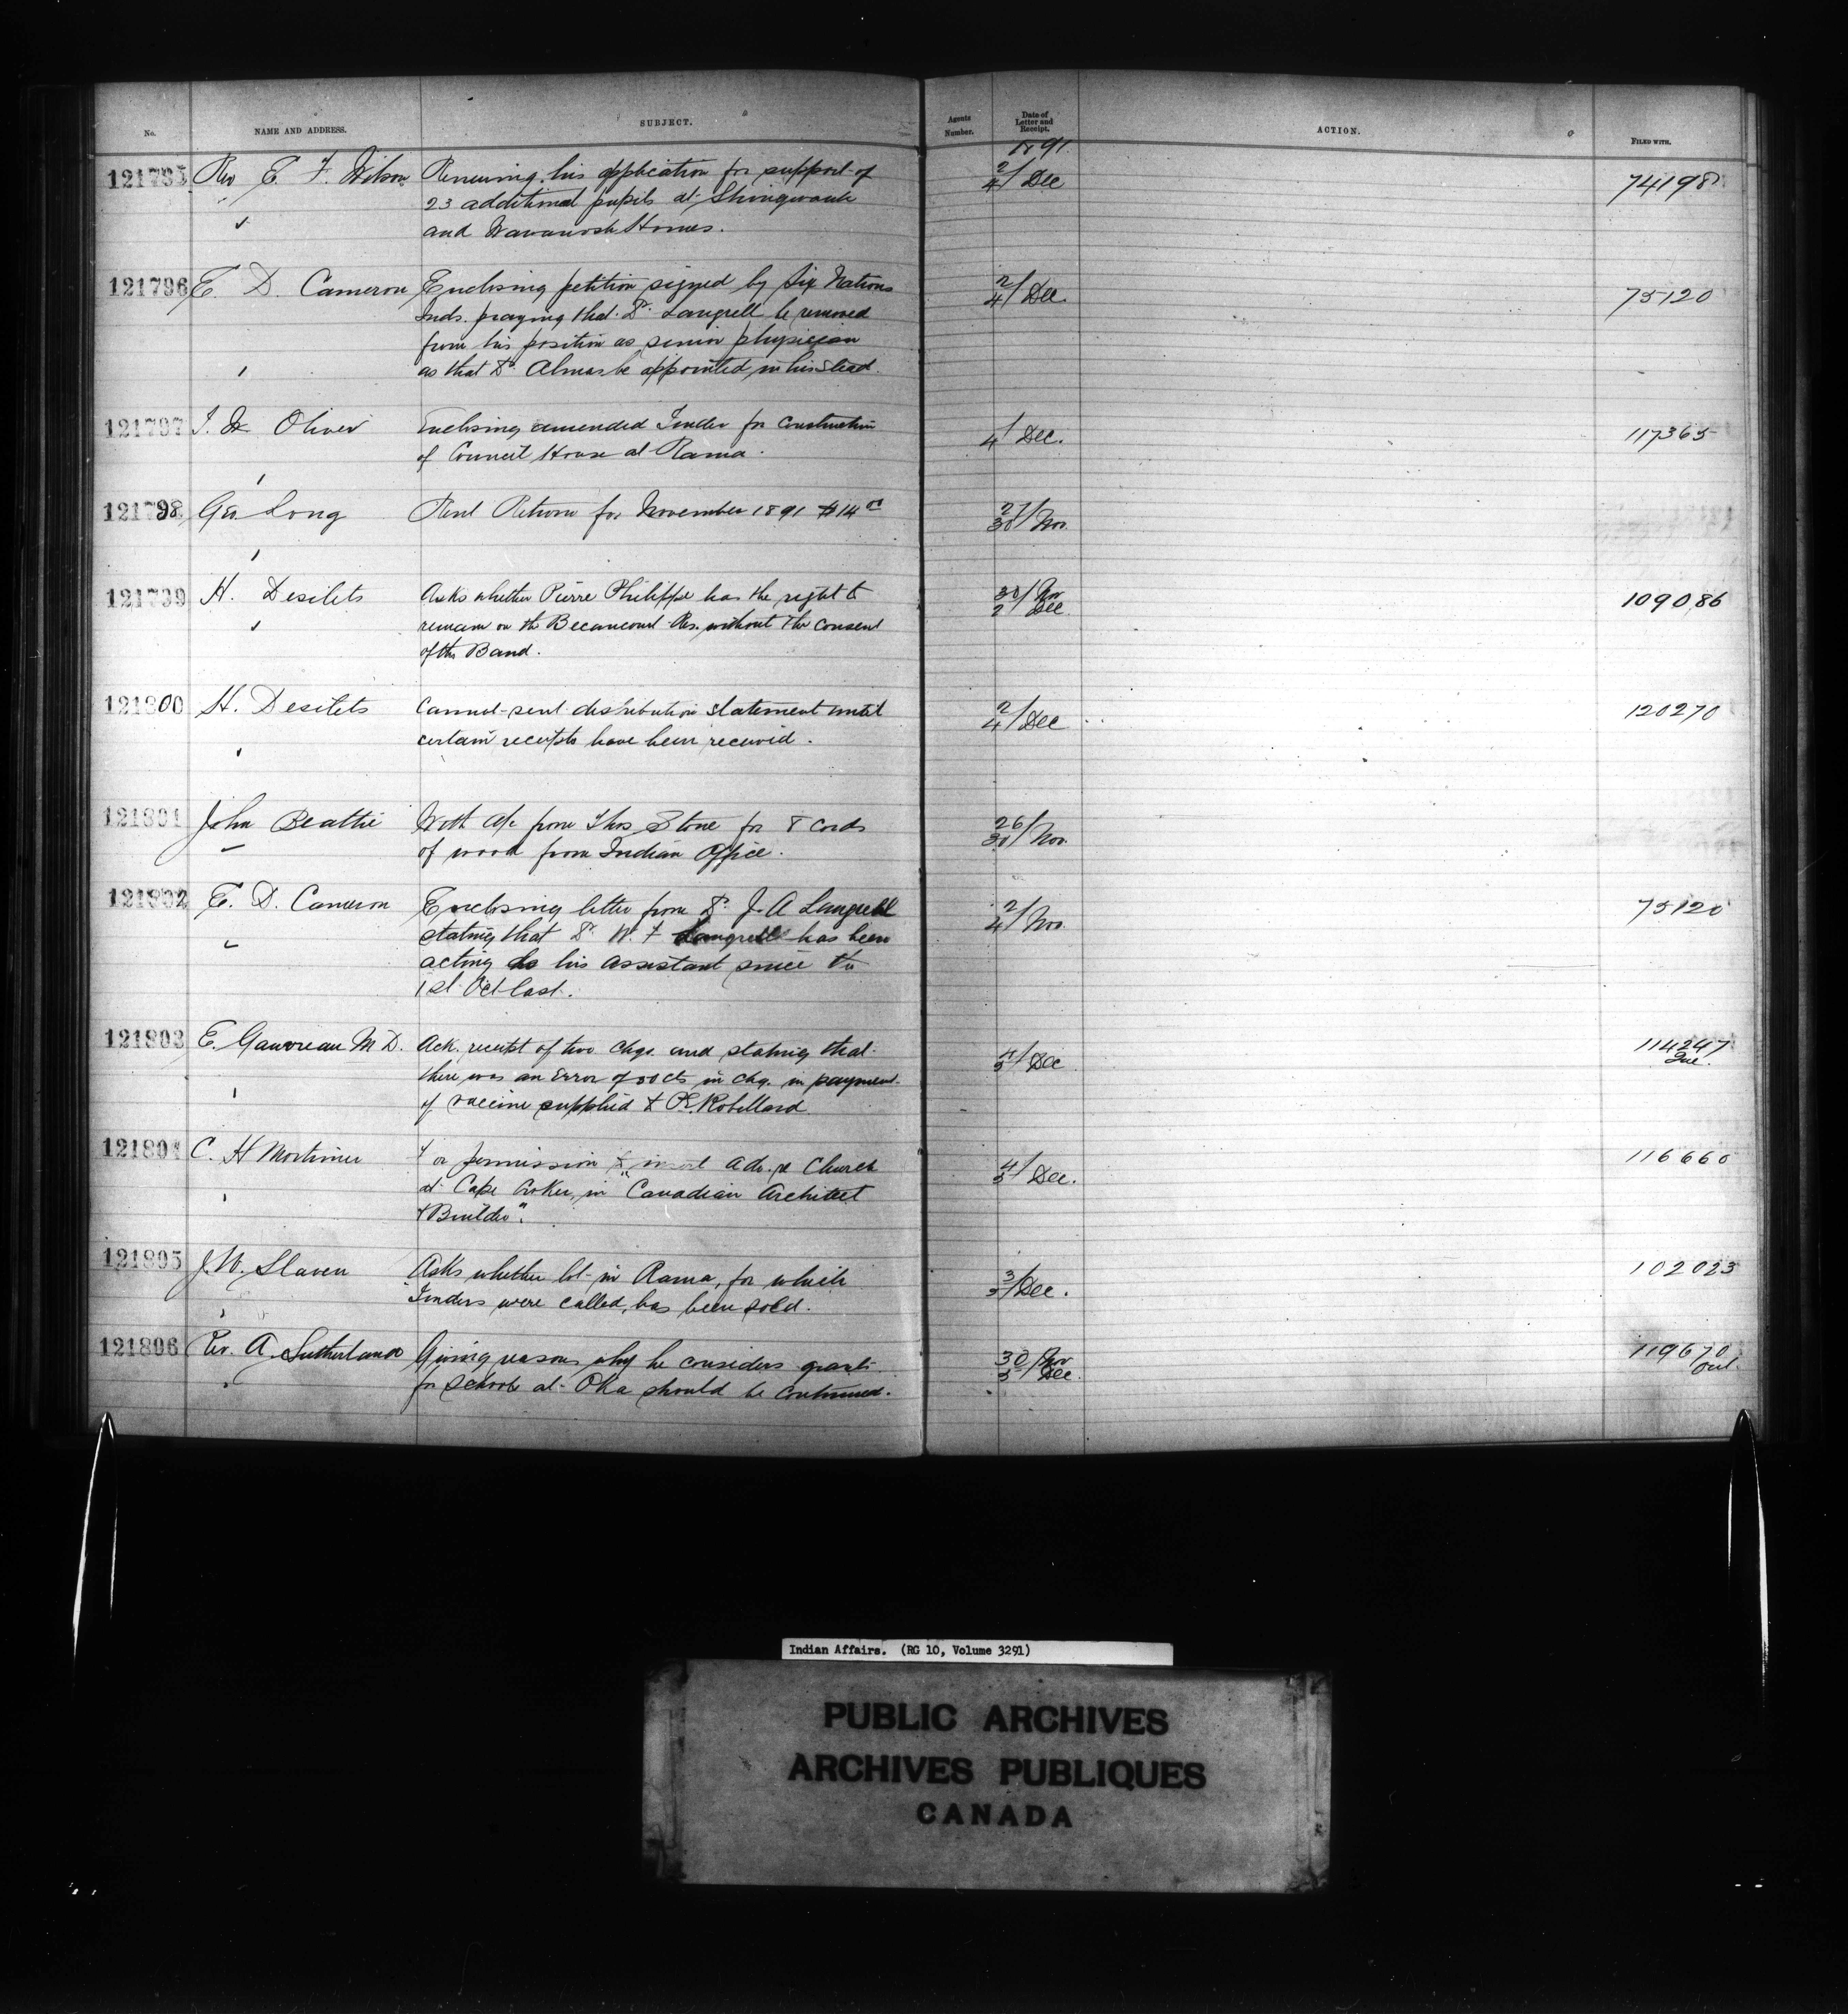 No.
NAME AND ADDRESS.
SUBJECT.
Agents Number.
Date of Letter and Receipt.
ACTION.
FILED WITH.
1891
121795 Rev E. F. Wilson Renewing his application for support of 2/4 Dec 74198
23 additional pupils at Shingwauk
and Wawanosh Homes.
121796 E. D. Cameron Enclosing petition signed by Six Nations 2/4 Dec. 75120
Inds. praying that Dr. Langrell be removed
from his position as senior physician
as that Dr. Almas be appointed in his stead.
121797 Oliver Enclosing amended Tender for construction /4 Dec. 117365
of Council House at Rama.
121798 Geo. Long Rent Return for November 1891 $14 27/30 Nov.
121799 H. Desilets Asks whether Pierre Philippe has the right to 30/2 Nov Dec 109086
remain on the Becancourt Res. without the consent
of the Band.
121800 H. Desilets Cannot send distribution statement until 2/4 Dec 120270
certain receipts have been received.
121801 John Beattie With a/c from Thos Stone for 8 cords 26/30 Nov.
of wood from Indian Office.
121802 E. D. Cameron Enclosing letter from Dr. J. A Langrell 2/4 Nov. 75120
stating that Dr. W. F Langrell has been
acting as his assistant since the
1st Oct last.
121803 E. Gauvreau M D. Ack. receipt of two chqs. and stating that 4/5 Dec 114247
there was an error of 50 cts in chq. in payment
of vaccine supplied to Robillard.
121804 C. H Mortimer For permission to insert adv. re Church 4/5 Dec. 116660
at Cape Croker, in "Canadian Architect
& Builder".
121805 J. W. Slaven Asks whether lot in Rama, for which 3/5 Dec. 102023
Tenders were called, has been sold.
121806 Rev. A. Sutherland Giving reasons why he considers grant 30/3 Nov Dec. 119670
for school at Oka should be continued.
Indian Affairs. (RG 10, Volume 3291)
PUBLIC ARCHIVES
ARCHIVES PUBLIQUES
CANADA